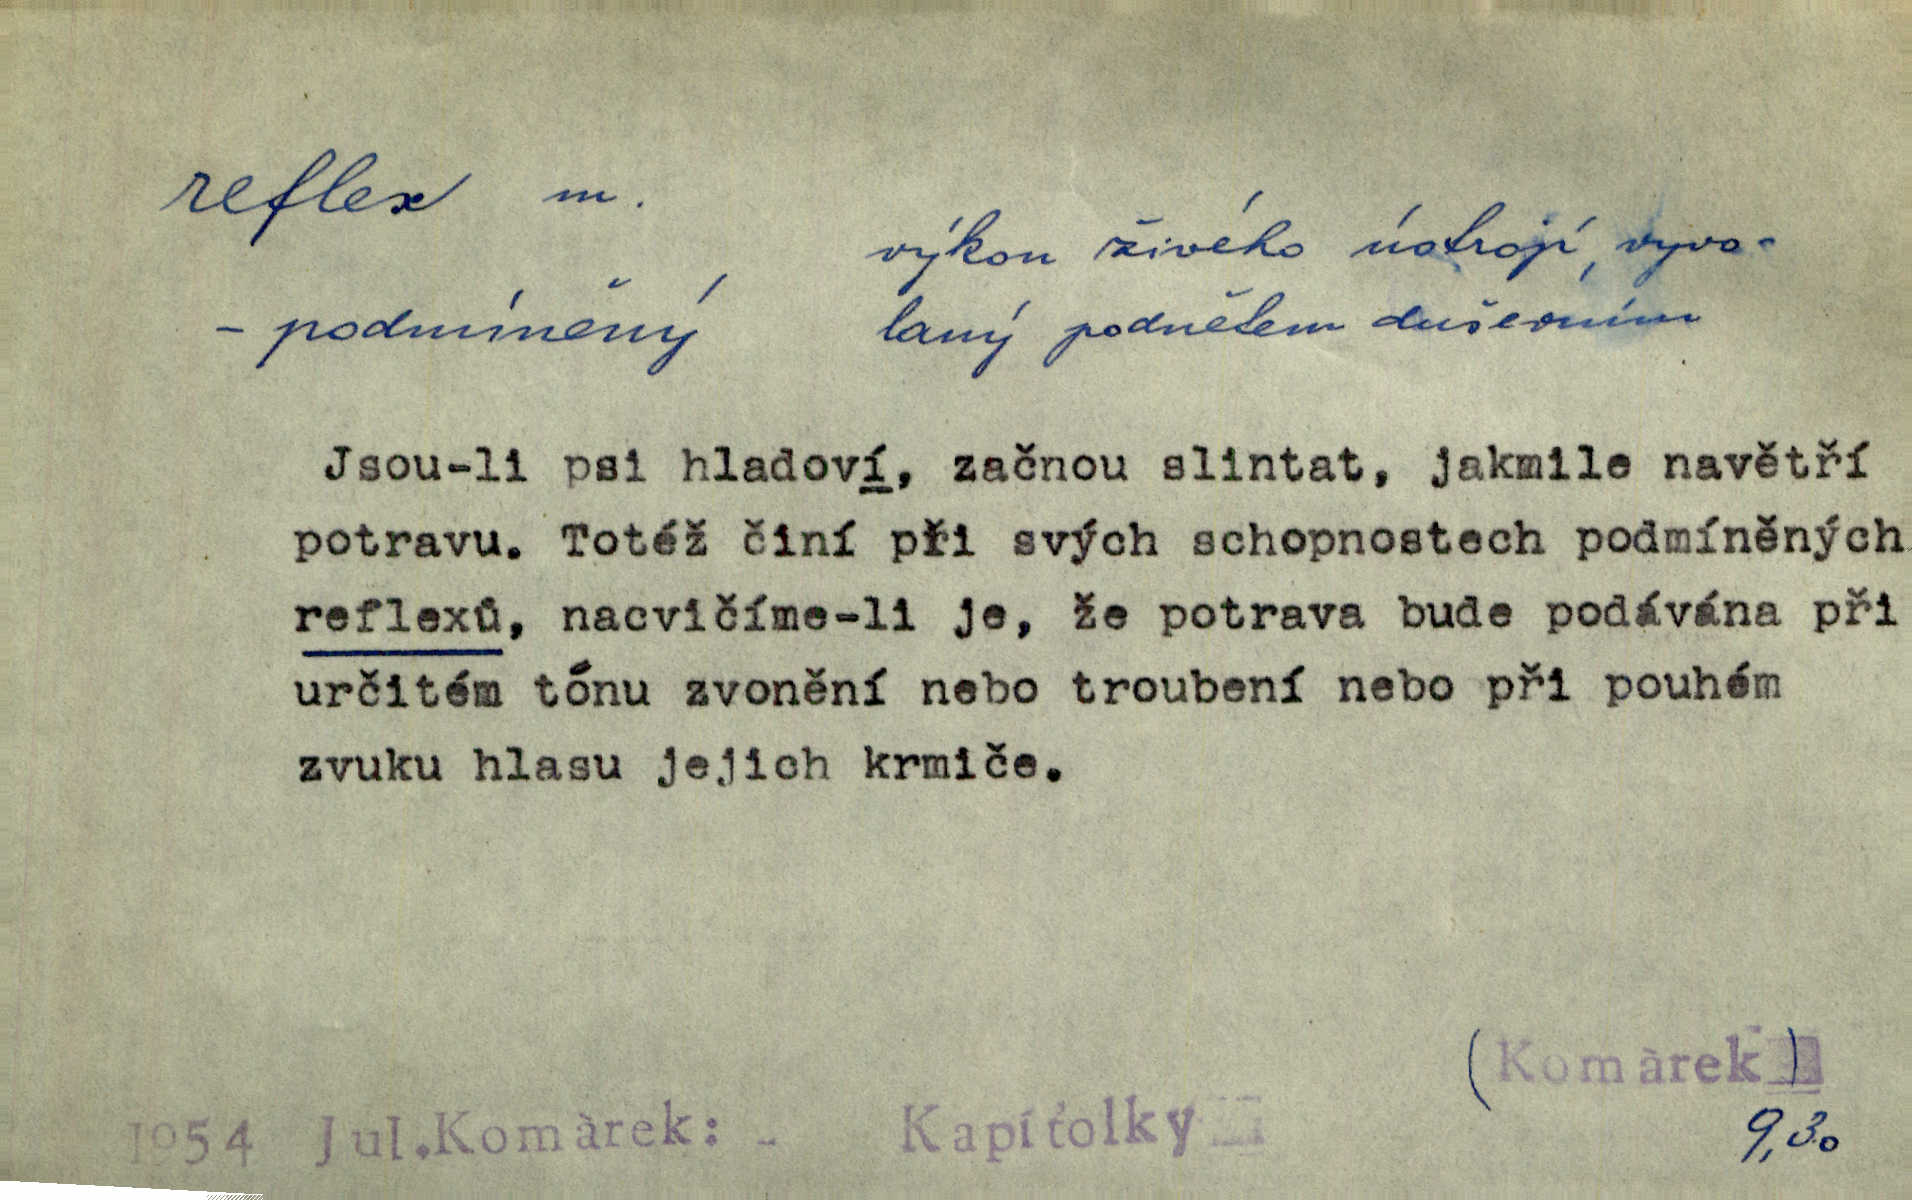 reflex m.
výkon živého ústrojí, vyvo-
- podmíněný
laný podnětem duševním
Jsou-li psi hladoví, začnou slintat, jakmile navětří
potravu. Totéž činí při svých schopnostech podmíněných
reflexů, nacvičíme-li je, že potrava bude podávána při
určitém tónu zvonění nebo troubení nebo při pouhém
zvuku hlasu jejich krmiče.
(Komàrek)
1954 Jul.Komàrek: - Kapitolky
9,30